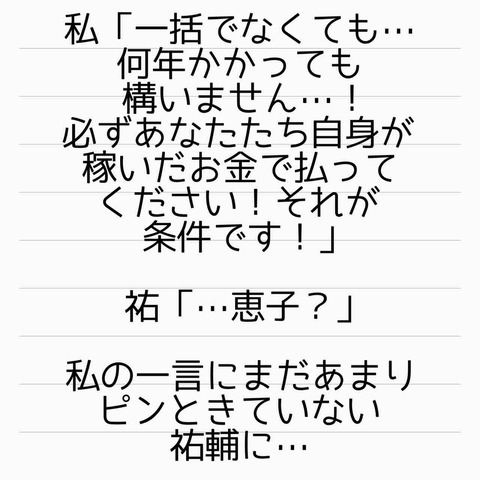 私「一括でなくても…
何年かかっても
構いません…！
必ずあなたたち自身が
稼いだお金で払って
ください！それが
条件です！」
祐「…恵子？」
私の一言にまだあまり
ピンときていない
祐輔に…